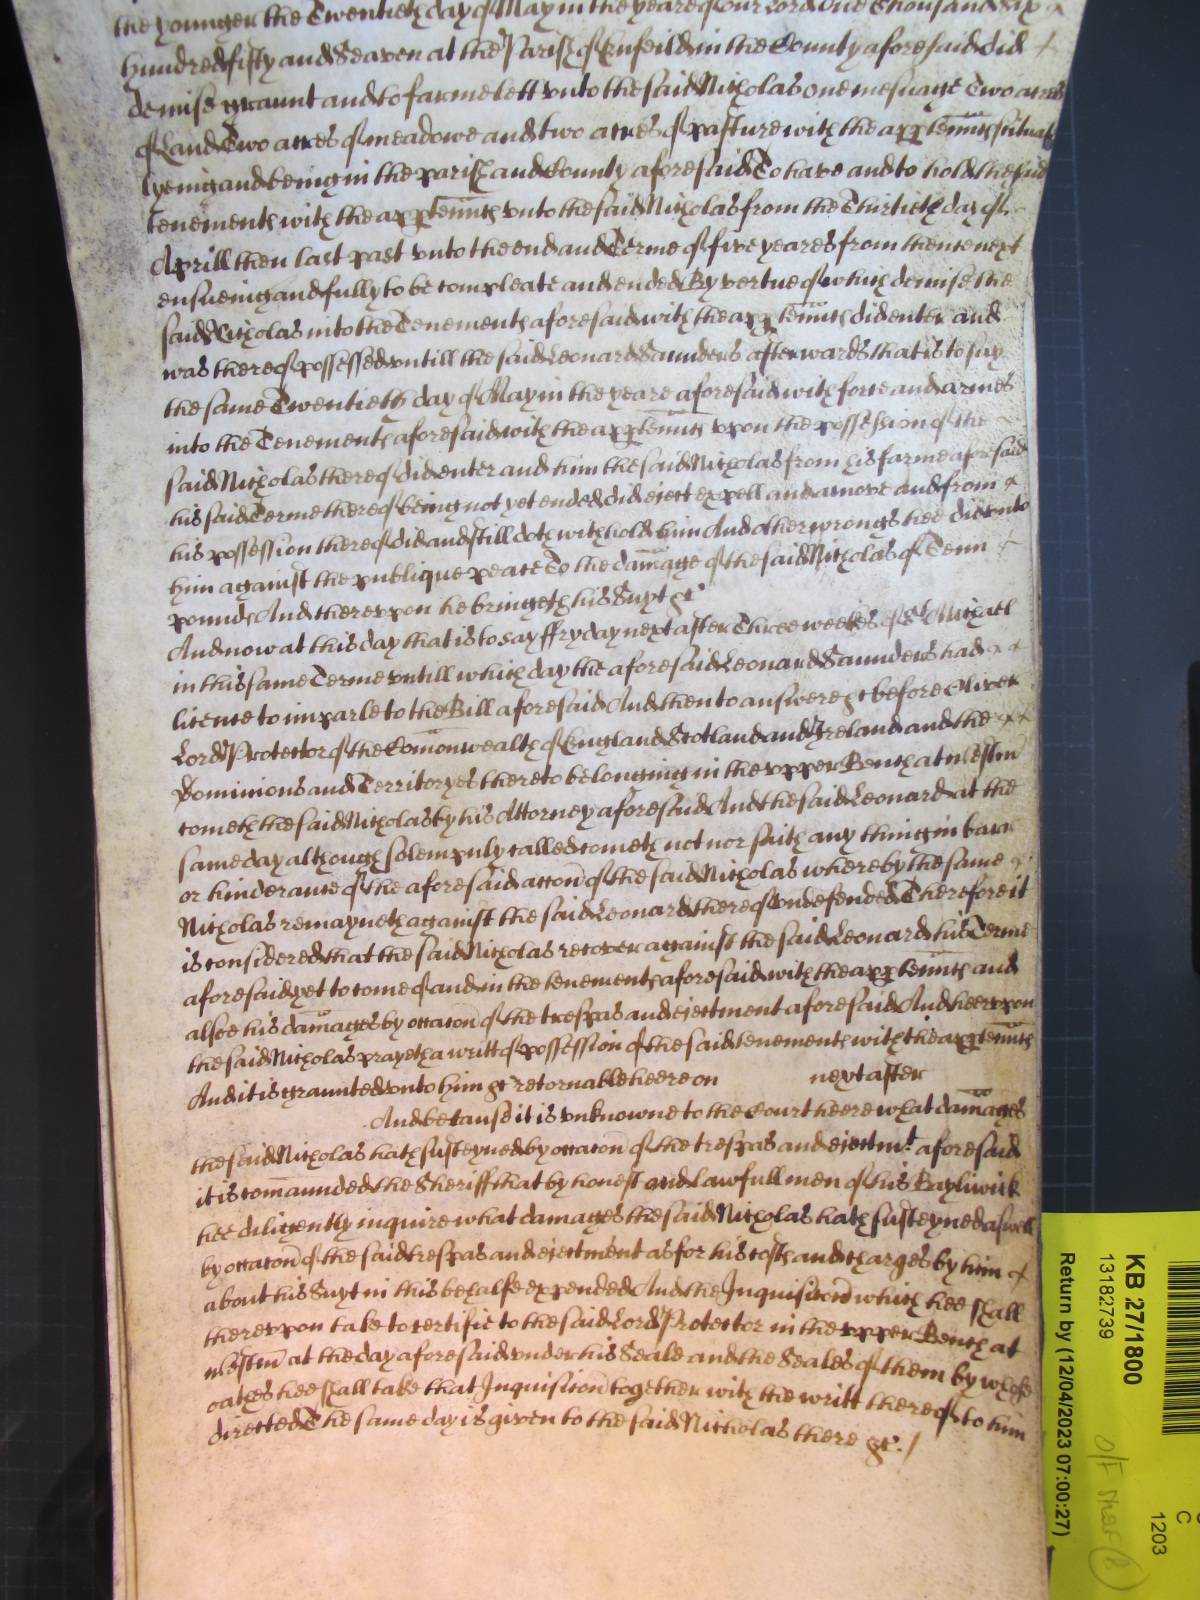 the younger the Twentieth day of May in the yeare of our Lord One Thousand Six
hundred fifty and Seaven at the Parish of Enfeild in the County aforesaid did
demise graunt and to farme lett unto the said Nicholas one mesuage Two acres
of Land Two acres of meadowe and two acres of pasture with the apptennc̃s scituate
lyeing and being in the parish and County aforesaid To have and to hold the said
tenements with the apptennc̃s unto the said Nicholas from the Thirtieth day of
Aprill then last past unto the end and Terme of five yeares from thence next
ensueing and fully to be compleate and ended By vertue of which demise the
said Nicholas into the Tenements aforesaid with the apptennc̃s did enter and
was thereof possessed untill the said Leonard Saunders afterwards that is to say
the same Twentieth day of May in the yeare aforesaid with force and armes
into the Tenements aforesaid with the apptennc̃s upon the possession of the
said Nicholas thereof did enter and him the said Nicholas from his farme aforesaid
his said Terme thereof being not yet ended did eject expell and amove and from
his possession thereof did and still doth withhold him And other wrongs hee did unto
him against the publique peace To the dam̃age of the said Nicholas of Tenn
pounds And thereupon he bringeth his Suyt &c
And now at this day that is to say ffryday next after Three weekes of St Michael
in this same Terme untill which day the aforesaid Leonard Saunders had
licence to imparle to the Bill aforesaid And then to answere &c before Oliver
Lord Protector of the Com̃onwealth of England Scotland and Ireland and the
Dominions and Territoryes thereto belonging in the upper Bench at Westm̃
cometh the said Nicholas by his Attorney aforesaid And the said Leonard at the
same day although solempnly called cometh not nor saith any thing in barr
or hinderance of the aforesaid acc̃on of the said Nicholas whereby the same
Nicholas remayneth against the said Leonard thereof undefended Therefore it
is considered that the said Nicholas recover against the said Leonard his Terme
aforesaid yet to come of and in the tenements aforesaid with the apptennc̃s and
alsoe his dam̃ages by occac̃on of the trespas and ejectment aforesaid And hereupon
the said Nicholas prayeth a writt of possession of the said tenements with the apptennc̃s
And it is graunted unto him &c retornable heere on next after
And because it is unknowne to the Court heere what dam̃ages
the said Nicholas hath susteyned by occac̃on of the trespas and ejectmt aforesaid
it is com̃aunded the Sheriff that by honest and lawfull men of his Bayliwick
hee diligently inquire what damages the said Nicholas hath susteyned aswell
by occac̃on of the said trespas and ejectment as for his costs and charges by him
about his Suyt in this behalfe expended And the Inquisic̃on which hee shall
thereupon take to certifie to the said Lord Protector in the upper Bench at
Westm̃ at the day aforesaid under his Seale and the Seales of them by whose
oathes hee shall take that Inquisic̃on together with the writt thereof to him
directed The same day is given to the said Nicholas there &c./
KB 27/1800
13182739
Return by (12/04/2023 07:00:27)
C
1203